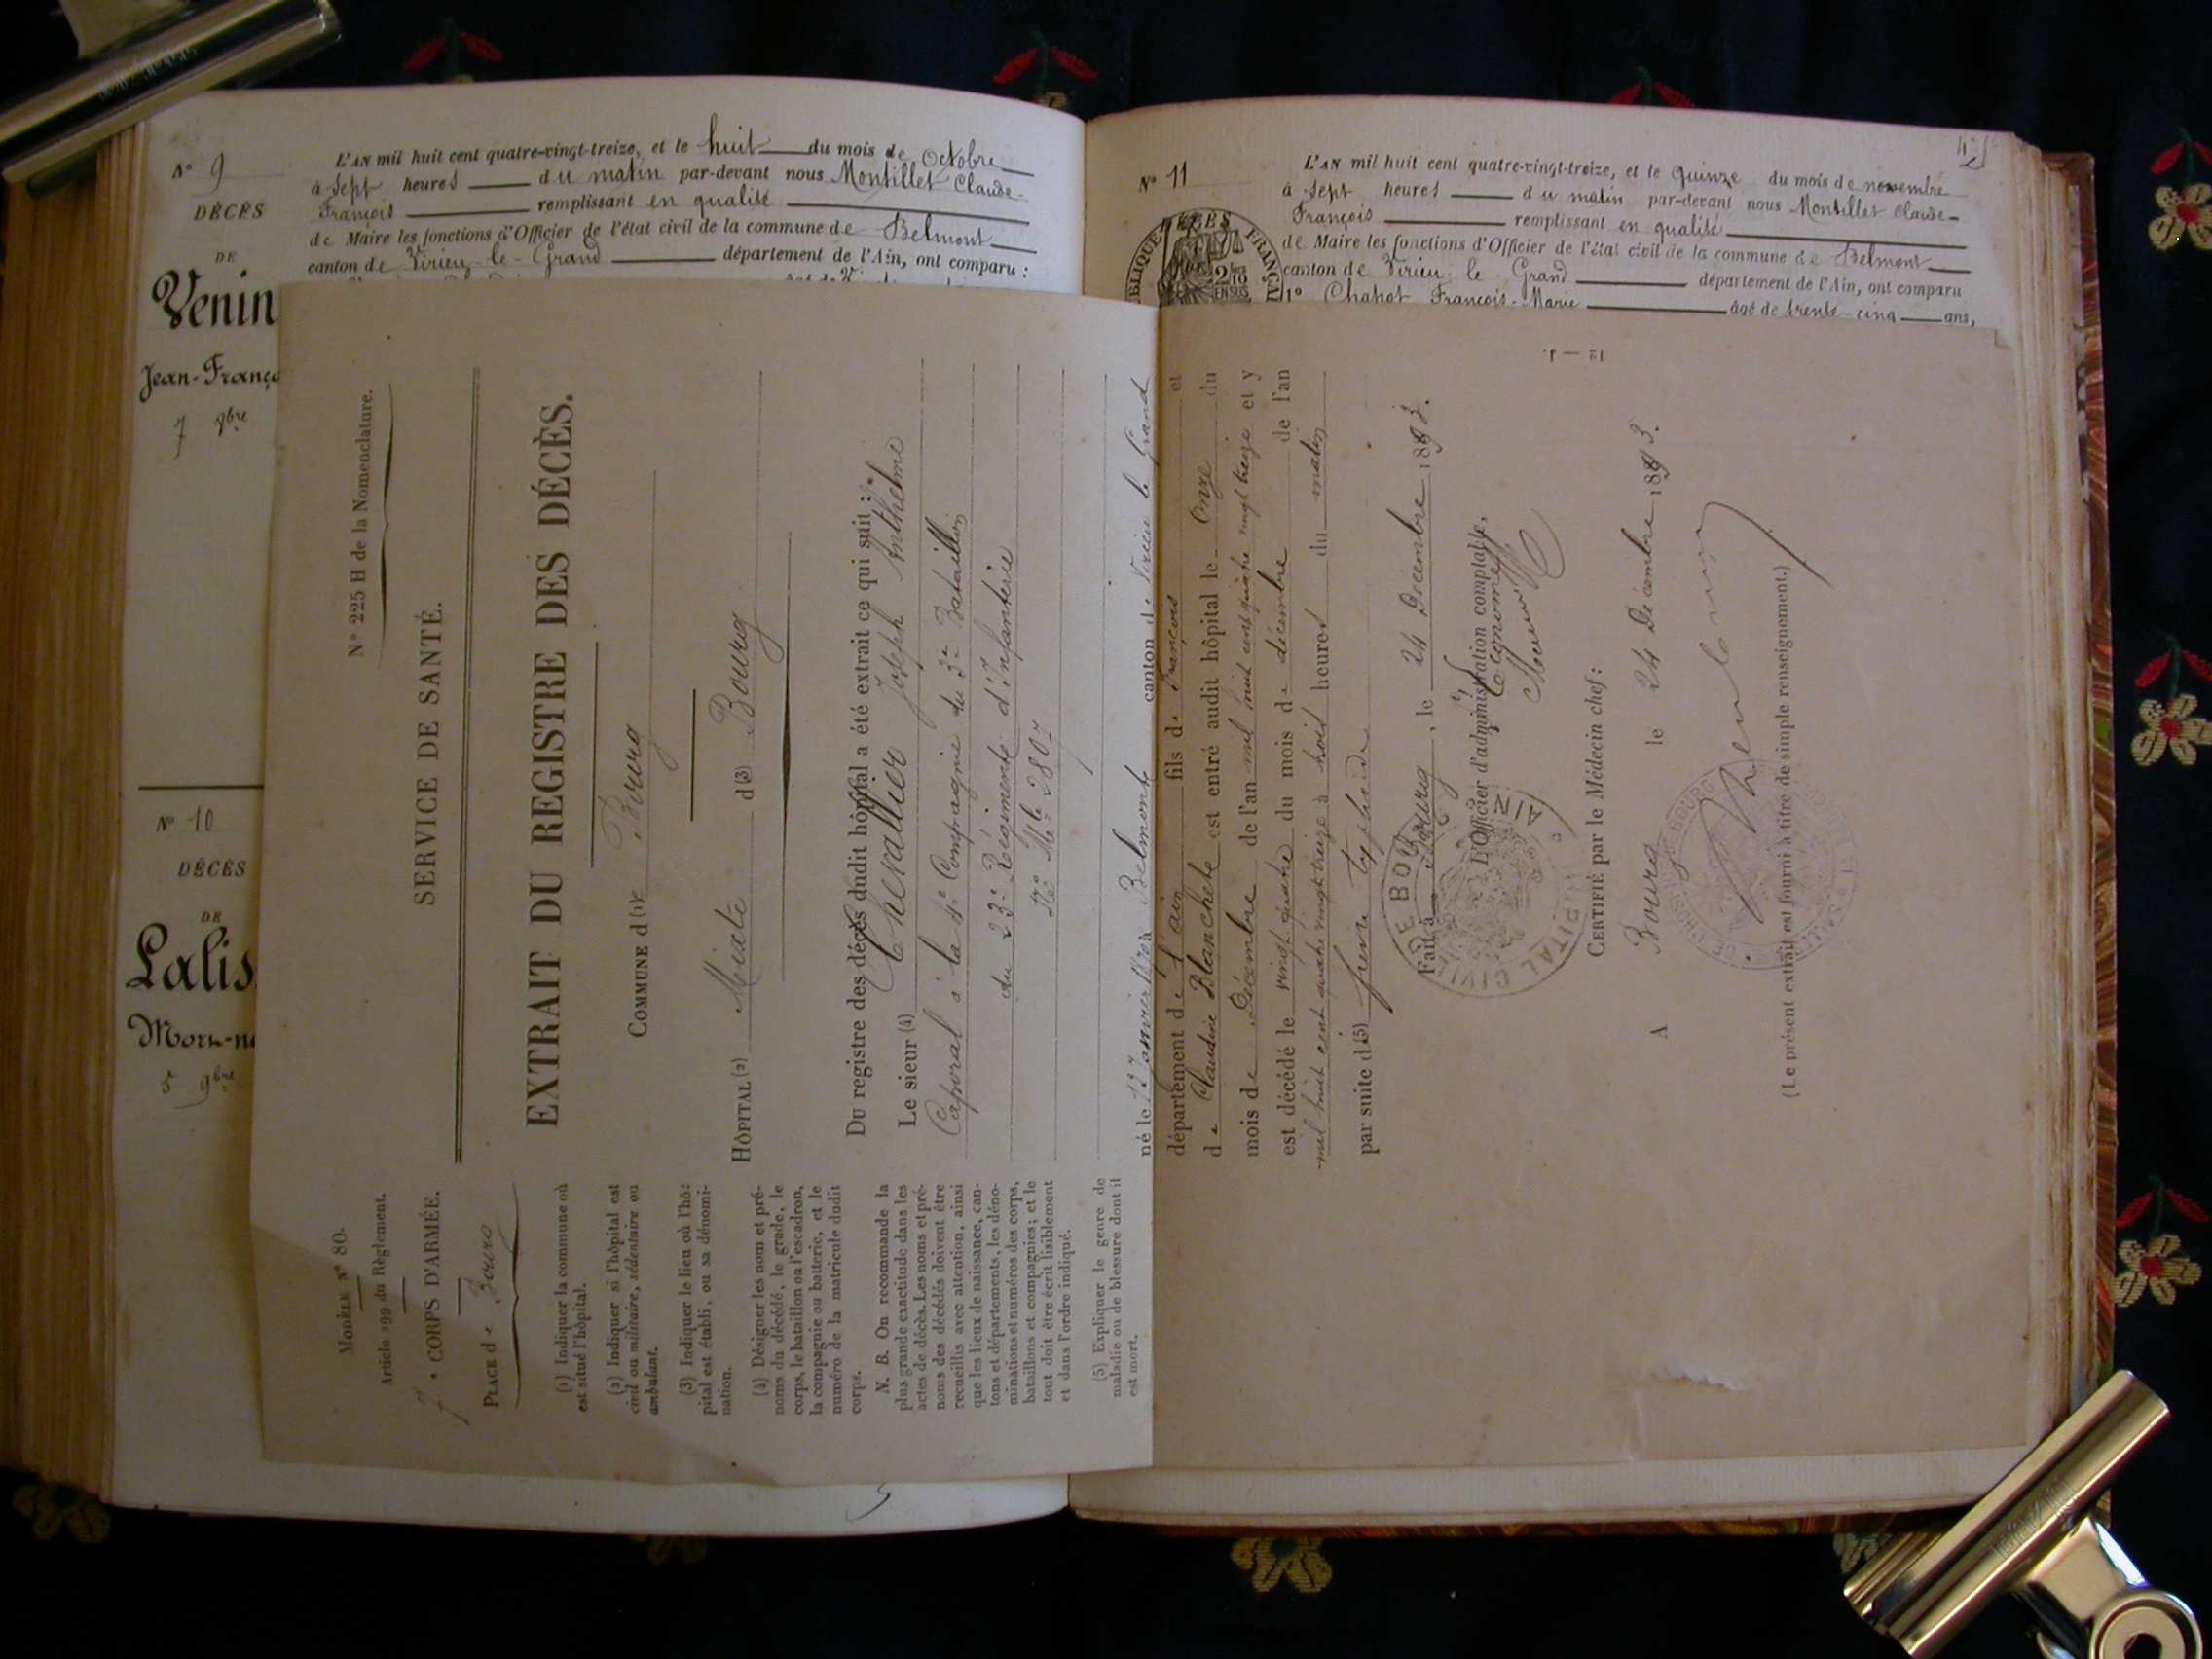 N° 9
DÉCÈS
DE
Venin
Jean-Franço
7 8bre
L'AN mil huit cent quatre-vingt-treize, et le huit du mois de Octobre
à sept heures du matin par-devant nous Montillet Claude-
François remplissant en qualité
de Maire les fonctions d'Officier de l'état civil de la commune de Belmont
canton de Virieu-le-Grand département de l'Ain, ont comparu :
N° 10
DÉCÈS
DE
Lalis
Mort-n
5 9bre
MODÈLE N° 80.
Article 199 du Règlement.
7e CORPS D'ARMÉE.
PLACE de Bourg
(1) Indiquer la commune où
est situé l'hôpital.
(2) Indiquer si l'hôpital est
civil ou militaire, sédentaire ou
ambulant.
(3) Indiquer le lieu où l'hô-
pital est établi, ou sa dénomi-
nation.
(4) Désigner les nom et pré-
noms du décédé, le grade, le
corps, le bataillon ou l'escadron,
la compagnie ou batterie, et le
numéro de la matricule dudit
corps.
N. B. On recommande la
plus grande exactitude dans les
actes de décès. Les noms et pré-
noms des décédés doivent être
recueillis avec attention, ainsi
que les lieux de naissance, can-
tons et départements, les déno-
minations et numéros des corps,
bataillons et compagnies; et le
tout doit être écrit lisiblement
et dans l'ordre indiqué.
(5) Expliquer le genre de
maladie ou de blessure dont il
est mort.
N° 225 H de la Nomenclature.
SERVICE DE SANTÉ.
EXTRAIT DU REGISTRE DES DÉCÈS.
COMMUNE d(1)e Bourg
HÔPITAL (2) Mixte d(3) Bourg
Du registre des décès dudit hôpital a été extrait ce qui suit :
Le sieur (4) Chevallier Joseph Anthelme
Caporal à la 4e Compagnie du 3e Bataillon
du 23e Régiment d'Infanterie
No Mle 2807
né le 12 Janvier 1870 à Belmont canton de Virieu le Grand
département de l'ain fils de François et
de Claudine Blanchet est entré audit hôpital le Onze du
mois de Décembre de l'an mil huit cent quatre vingt treize et y
est décédé le vingt quatre du mois de décembre de l'an
mil huit cent quatre vingt treize à huit heures du matin
par suite d(5) fièvre typhoïde
Fait à Bourg, le 24 Décembre 1893.
L'Officier d'administration comptable,
L'économe
CERTIFIÉ par le Médecin chef :
A Bourg le 24 Décembre 1893.
(Le présent extrait est fourni à titre de simple renseignement.)
12 — 1.
N° 11
L'AN mil huit cent quatre-vingt-treize, et le Quinze du mois de novembre
à sept heures du matin par-devant nous Montillet Claude-
François remplissant en qualité
de Maire les fonctions d'Officier de l'état civil de la commune de Belmont
canton de Virieu-le-Grand département de l'Ain, ont comparu
1° Chahot François-Marie âgé de trente-cinq ans,